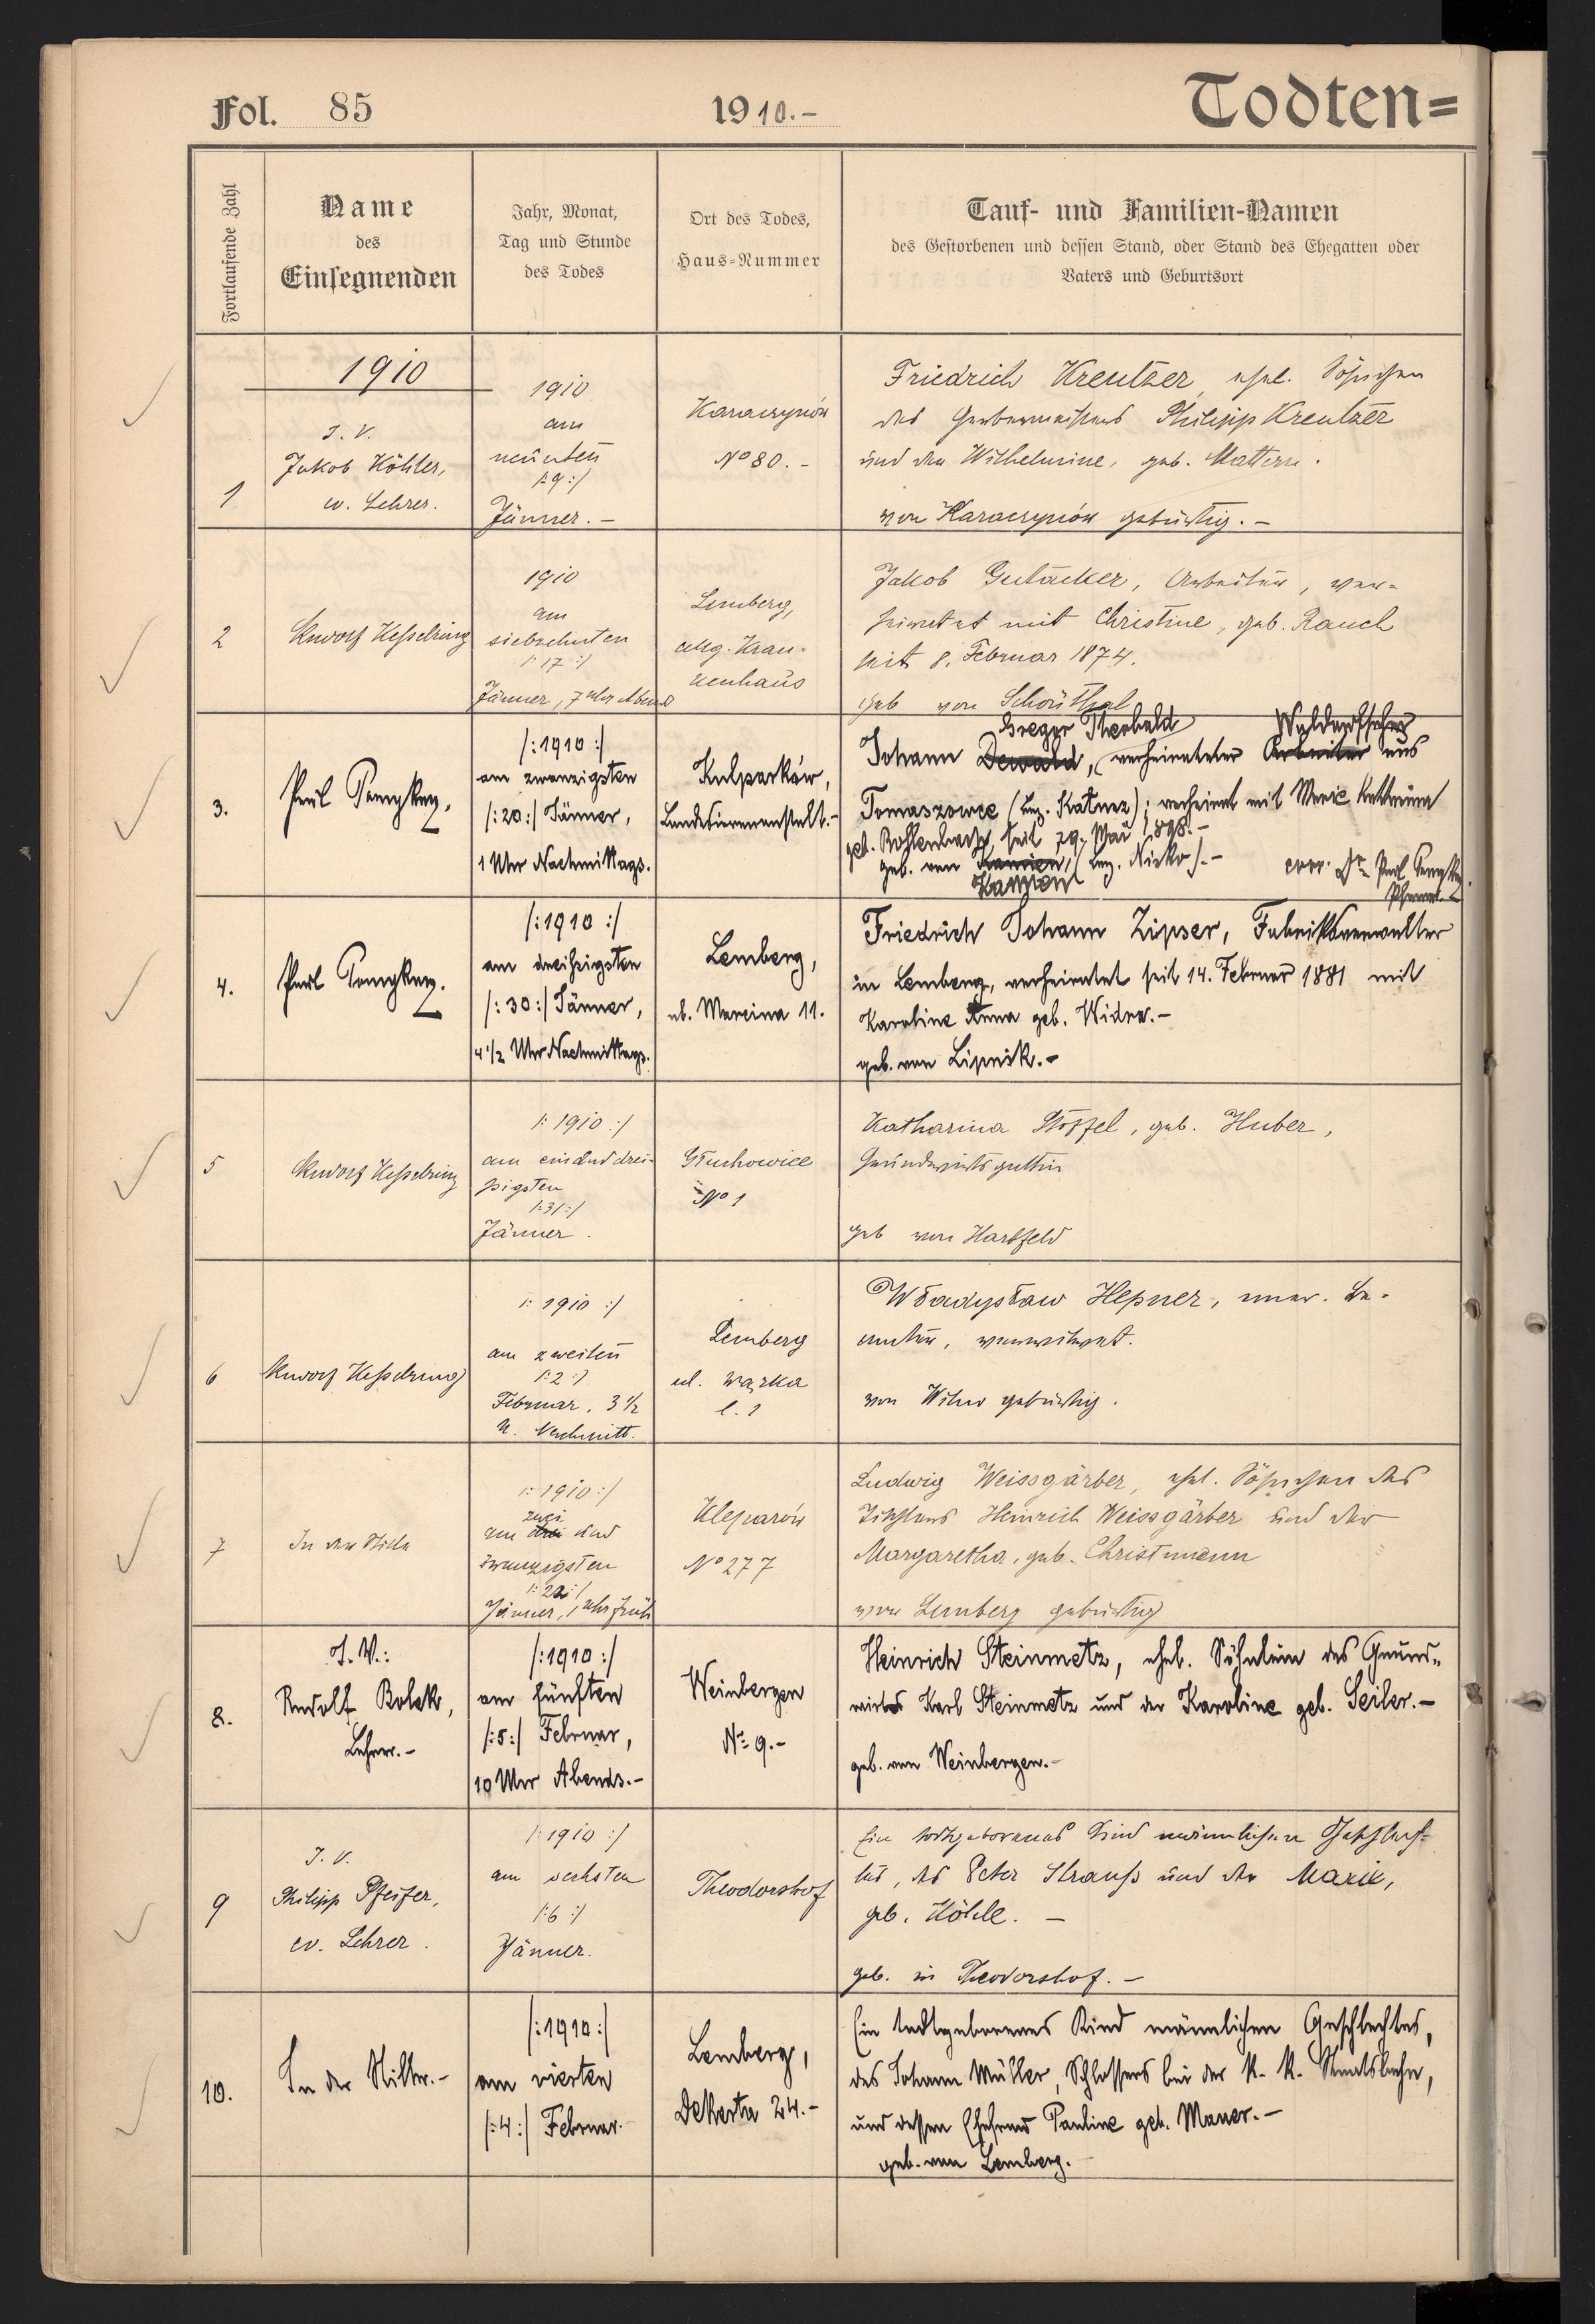 Fol. 85
1910.-
Todten=
Fortlaufende Zahl
Name
des
Einsegnenden
Jahr, Monat,
Tag und Stunde
des Todes
Ort des Todes,
Haus-Nummer
Tauf- und Familien-Namen
des Gestorbenen und dessen Stand, oder Stand des Ehegatten oder
Vaters und Geburtsort
1910
1
J. V.
Jakob Köhler,
ev. Lehrer.
1910
am
neunten
/:9:/
Jänner. -
Karaczynów
No 80. -
Friedrich Kreutzer, ehel. Söhnchen
des Gerbermeisters Philipp Kreutzer
und der Wilhelmine, geb. Mattern.
von Karaczynów gebürtig. -
2
Rudolf Kesselring
1910
am
siebzehnten
/:17:/
Jänner, 7 Uhr Abend
Lemberg,
allg. Kran-
kenhaus
Jakob Gutacker, Arbeiter, ver-
heiratet mit Christine, geb. Rauch
seit 8. Februar 1874.
geb von Schönthal
3.
/:1910:/
am zwanzigsten
/:20:/ Jänner,
1 Uhr Nachmittags.
Kulparków,
Landesirrenanstalt.-
Gregor Theobald Waldaufseher
Johann Dewald, verheirateter Arbeiter aus
Tomaszowce (bez. Kałusz); verheirat mit Marie Katharina
geb. Rohlenbach, seit 29. Mai 1898.-
geb. von Kamien, (bez. Nisko).-
Kamień
corr. Dr. Paul
Pfarrer
4.
/:1910:/
am dreißigsten
/:30:/ Jänner,
4 1/2 Uhr Nachmittags.
Lemberg,
ul. Marcina 11.
Friedrich Johann Zipser, Fabriksverwalter
in Lemberg, verheiratet seit 14. Februar 1881 mit
Karoline Anna geb. Widra.-
geb. von Lipnik.-
5
Rudolf Kesselring
/:1910:/
am einunddrei-
ßigsten
/:31:/
Jänner.
Głuchowice
No 1
Katharina Stöffel, geb. Huber,
Grundwirtsgattin
geb von Hartfeld
6
Rudolf Kesselring
/:1910:/
am zweiten
/:2:/
Februar, 3 1/2
U. Nachmitt.
Lemberg
ul. Wązka
l. 1
Władysław Hepner, Be-
amter, verwitwet.
von Wilno gebürtig.
7
In der Stille
/:1910:/
zwei
am drei und
zwanzigsten
/:22:/
Jänner, 1 Uhr früh
Kleparów
No 277
Ludwig Weissgärber, ehel. Söhnchen des
Tischlers Heinrich Weissgärber und der
Margaretha, geb. Christmann
von Lemberg gebürtig
8.
J. V.:
Rudolf Bolek,
Lehrer.-
/:1910:/
am fünften
/:5:/ Februar,
10 Uhr Abends.-
Weinbergen
No 9.-
Heinrich Steinmetz, ehel. Söhnlein des Grund-
wirtes Karl Steinmetz und der Karoline geb. Seiler.-
geb. von Weinbergen.-
9
J. V.
Philipp Pfeifer,
ev. Lehrer.
/:1910:/
am sechsten
/:6:/
Jänner.
Theodorshof
Ein todtgeborenes Kind männlichen Geschlech-
tes, des Peter Strauß und der Marie,
geb. Köhle. -
geb. in Theodorshof. -
10.
In der Stille.-
/:1910:/
am vierten
/:4:/ Februar.
Lemberg,
Dekerta 24.-
Ein todtgeborenes Kind männlichen Geschlechtes,
des Johann Müller, Schlossers bei der k. k. Staatsbahn,
und dessen Ehefrau Pauline geb. Mauer.-
geb. von Lemberg.